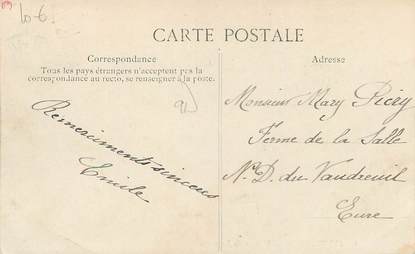 10-6.
CARTE POSTALE
Correspondance
Tous les pays étrangers n'acceptent pas la
correspondance au recto, se renseigner à la poste.
Remerciments sincères
Emile
Adresse
Monsieur Mary
Ferme de la Salle
N.D. du Vaudreuil
Eure